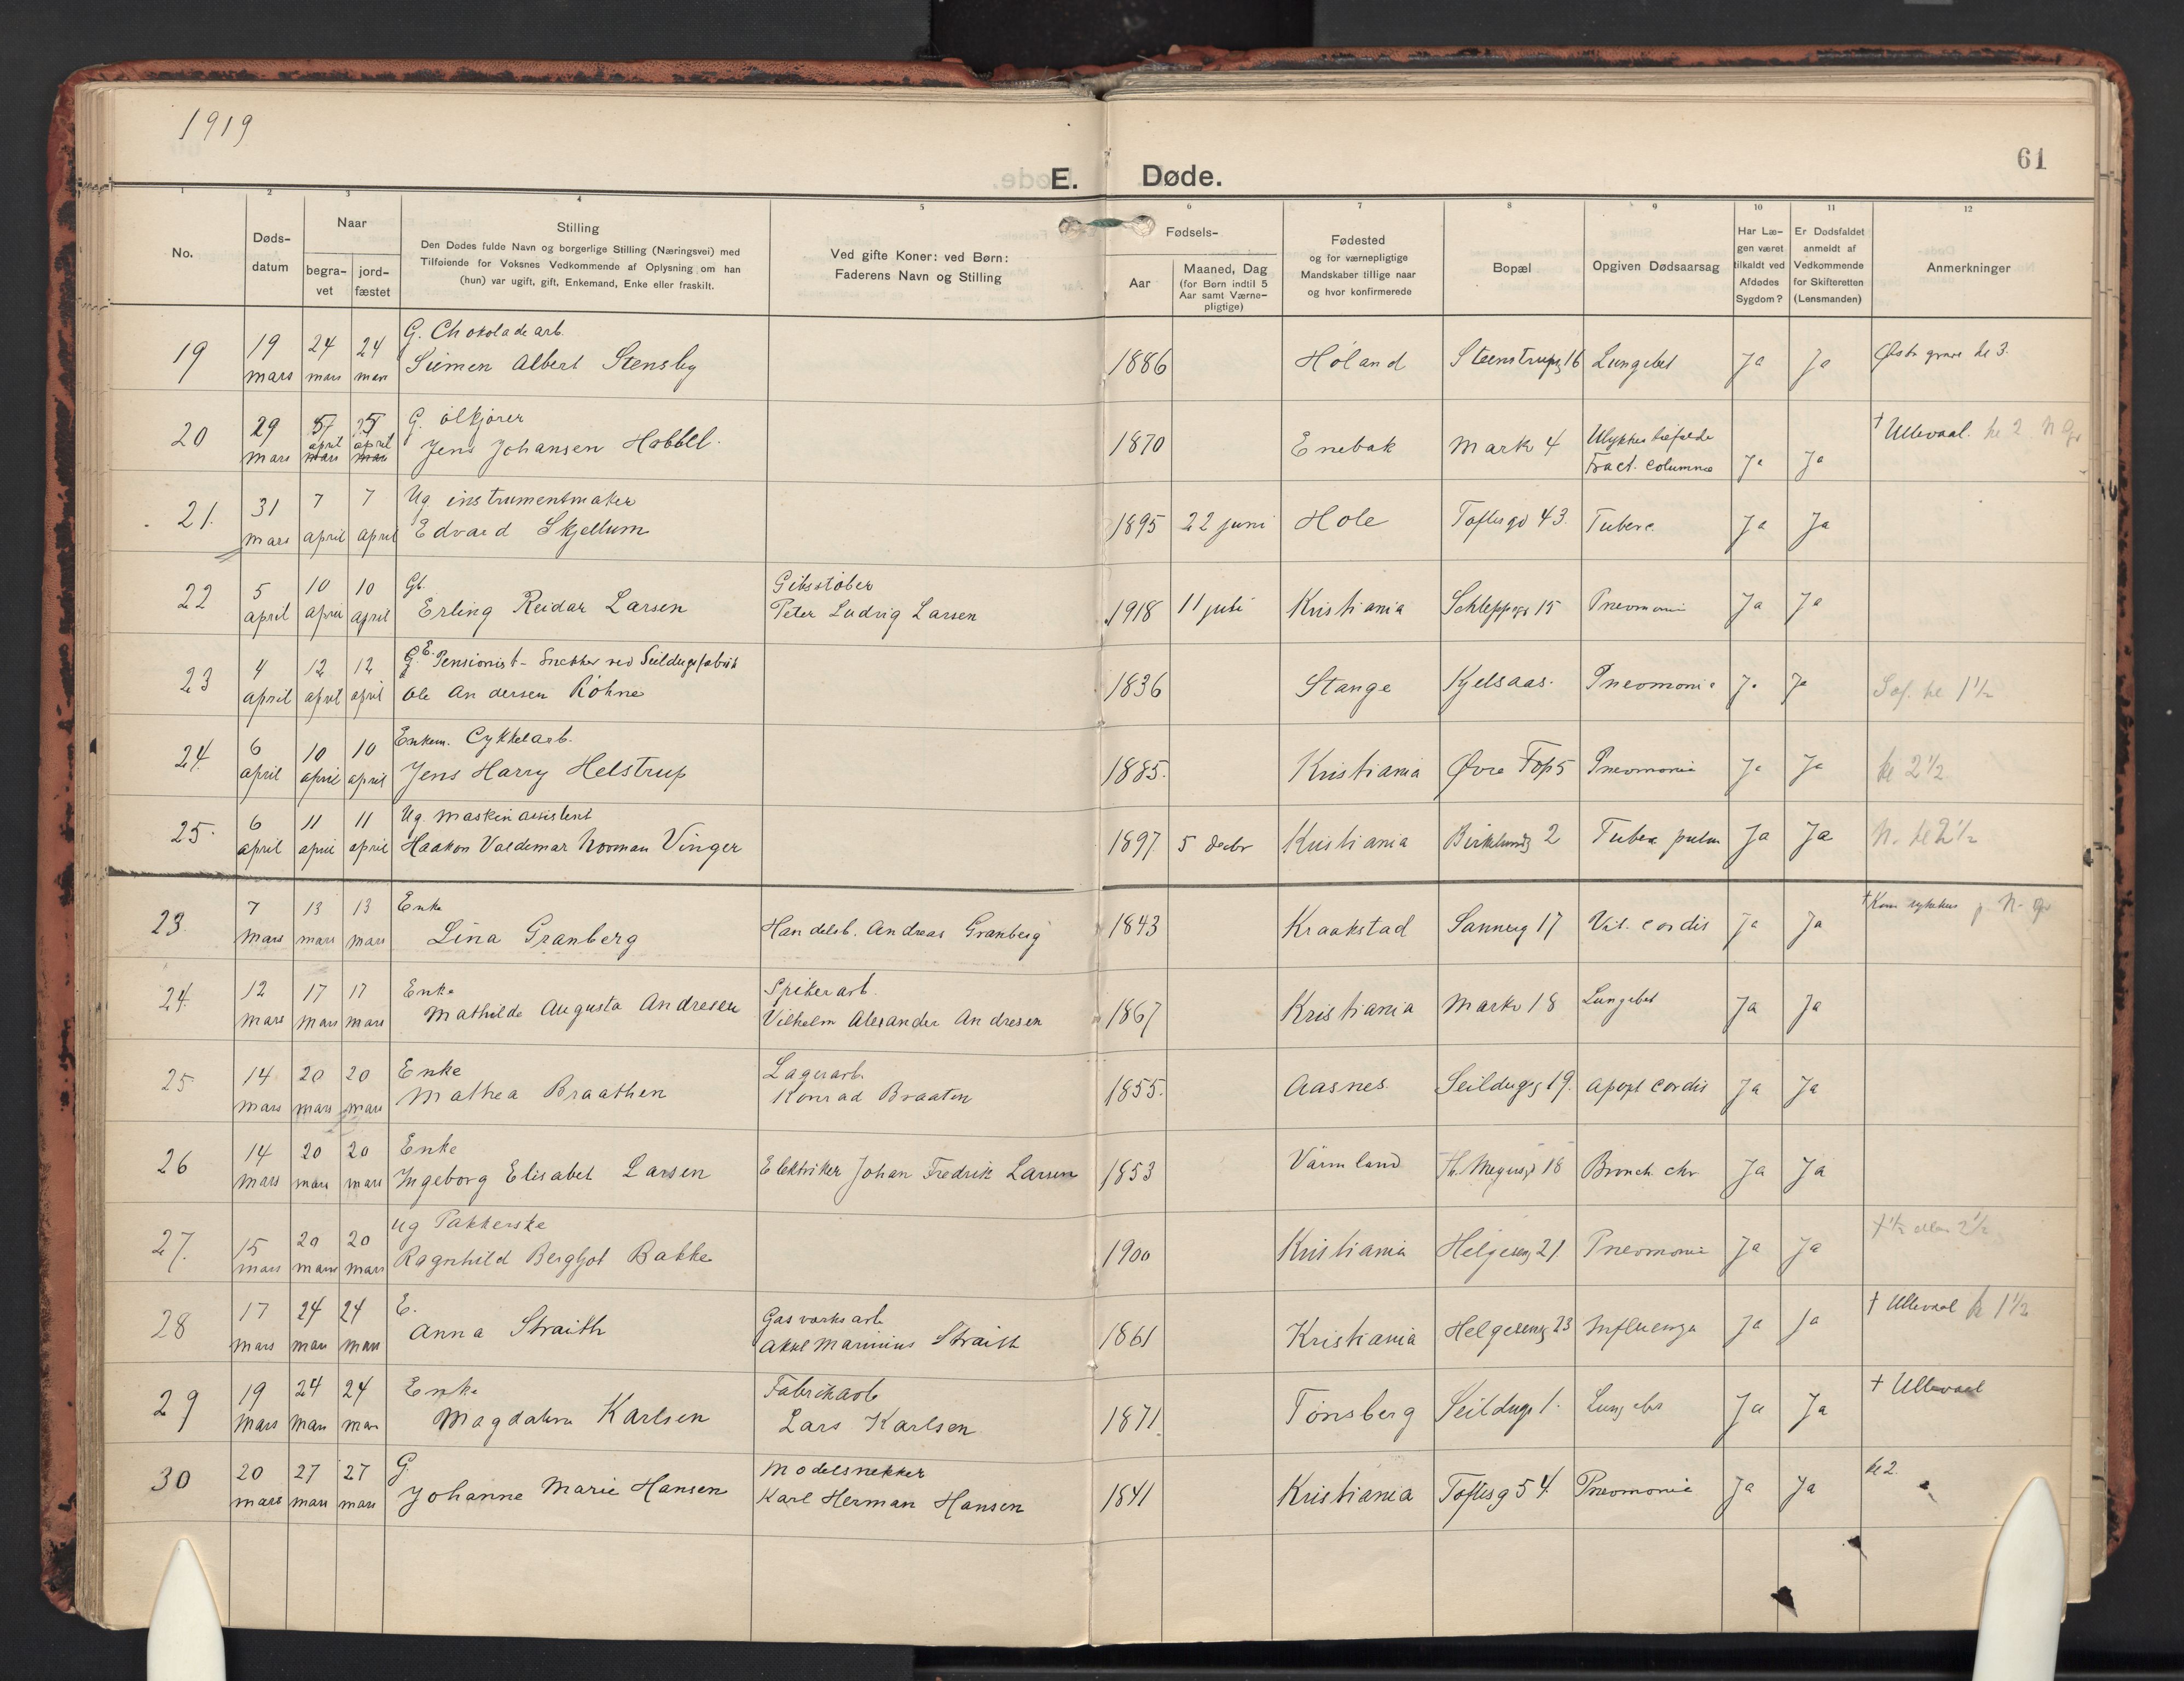 1919
61
E. Døde.
1 2 3 4 5 6 7 8 9 10 11 12
No.
Døds-
datum
Naar
begra-
vet
jord-
fæstet
Stilling
Den Dødes fulde Navn og borgerlige Stilling (Næringsvei) med
Tilføiende for Voksnes Vedkommende af Oplysning om han
(hun) var ugift, gift, Enkemand, Enke eller fraskilt.
Ved gifte Koner: ved Børn:
Faderens Navn og Stilling
Fødsels-
Aar
Maaned, Dag
(for Børn indtil 5
Aar samt Værne-
pligtige)
Fødested
og for værnepligtige
Mandskaber tillige naar
og hvor konfirmerede
Bopæl
Opgiven Dødsaarsag
Har Læ-
gen været
tilkaldt ved
Afdødes
Sygdom?
Er Dødsfaldet
anmeldt af
Vedkommende
for Skifteretten
(Lensmanden)
Anmerkninger
19 24 24 G. Chokoladearb.
19 mars mars mars Simen Albert Stensby 1886 Høland Steenstrupg 16 Lungebet Ja Ja kl 3.
29 5 5 G. ølkjører Ulykkestilfælde † Ullevaal. kl 2 N gr
20 mars april april Jens Johansen Hobbel. 1870 Enebak Markv 4 Fract. columnæ Ja Ja
mars mars
31 7 7 Ug. instrumentmaker
21. mars april april Edvard Skjellum 1895 22 juni Hole Toftesgd 43. Tuberc. Ja Ja
5 10 10 Gb. Gibsstøber
22 april april april Erling Reidar Larsen Peter Ludvig Larsen 1918 11 juli Kristiania Schleppegr 15 Pneomoni Ja Ja
4 12 12 G. E. Pensionist - Snekker ved Seildugsfabrik
23 april april april Ole Andersen Røhne 1836 Stange Kjelsaas. Pneomoni Ja Ja Sof. kl 1½
6 10 10 Enkem. Cykkelarb.
24 april april april Jens Harry Helstrup 1885. Kristiania Øvre Fos 5 Pneomonie Ja Ja kl 2½
6 11 11 Ug. maskinassistent
25. april april april Haakon Valdemar Norman Vinger 1897 5 decbr Kristiania Birklundg 2 Tuberc pulm Ja Ja N. kl 2½
7 13 13 Enke † Kom sykehus N. gr
23. mars mars mars Lina Granberg Handelsb. Andreas Granberg 1843 Kraakstad Sannerg 17 Vit. cordis Ja Ja
12 17 17 Enke Spikerarb.
24. mars mars mars Mathilde Augusta Andresen Vilhelm Alexander Andresen 1867 Kristiania Markv 18 Lungebet Ja Ja
14 20 20 Enke Lagerarb.
25 mars mars mars Mathea Braathen Konrad Braaten 1855. Aasnes. Seildugsg 19. apopl cordis Ja Ja
14 20 20 Enke
26 mars mars mars Ingeborg Elisabet Larsen Elektriker Johan Fredrik Larsen 1853 Värmland Th. Meyersgt 18 Bronch. chr Ja Ja
15 20 20 Ug Pakkerske
27. mars mars mars Ragnhild Bergljot Bakke 1900 Kristiania Helgeseng 21 Pneomonie Ja Ja 2½
17 24 24 E. Gasværksarb † Ullevaal kl 1½
28 mars mars mars Anna Straith Aksel Marinius Straith 1861 Kristiania Helgeseng 23 Influenza Ja Ja
19 24 24 Enke Fabrikarb † Ullevaal
29 mars mars mars Magdalena Karlsen Lars Karlsen 1871. Tønsberg Seildugs 1. Lungebet Ja Ja
20 27 27 G. Modelsnekker kl 2.
30 mars mars mars Johanne Marie Hansen Karl Herman Hansen 1841 Kristiania Toftesg 54 Pneomonie Ja Ja